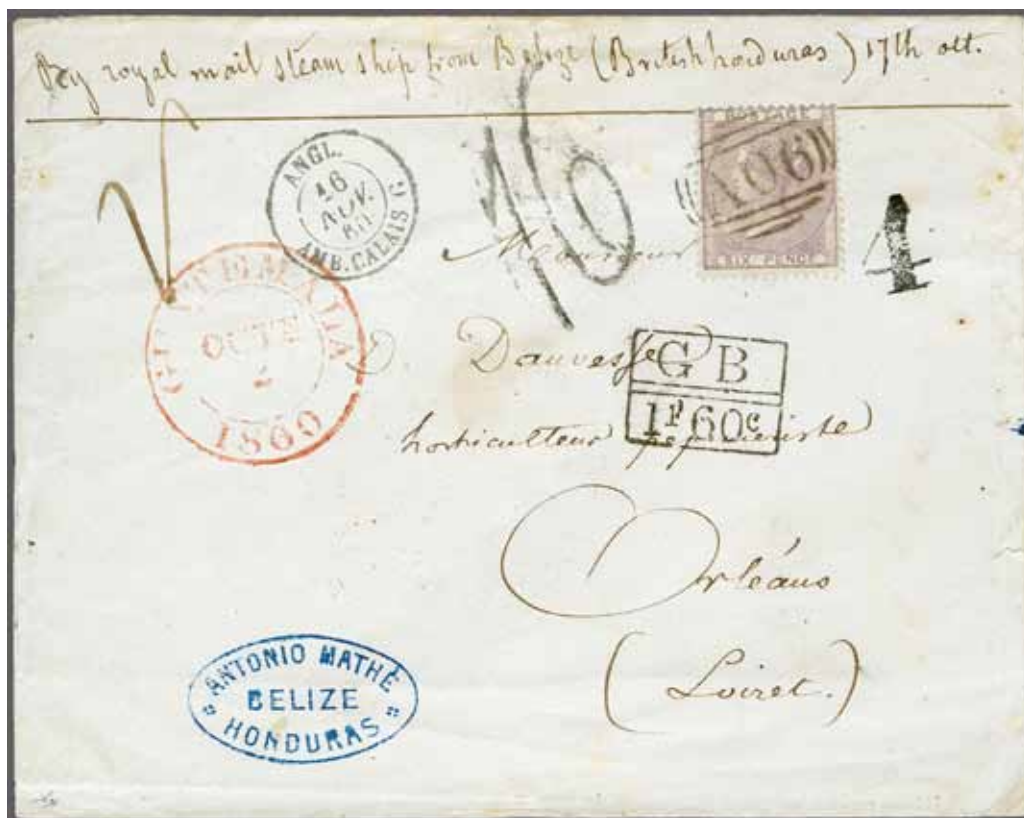 By royal mail steam ship from Belize (British honduras) 17th oct.
ANGL.
16
AMB. CALAIS G
16
POSTAGE
A06
SIX PENCE
4
GUATEMALA
OCTE
1860
Monsieur
D. Dauvesse
GB
1F60c
horticulteur pépiniériste
Orléans
(Loiret.)
ANTONIO MATHÉ
BELIZE
HONDURAS